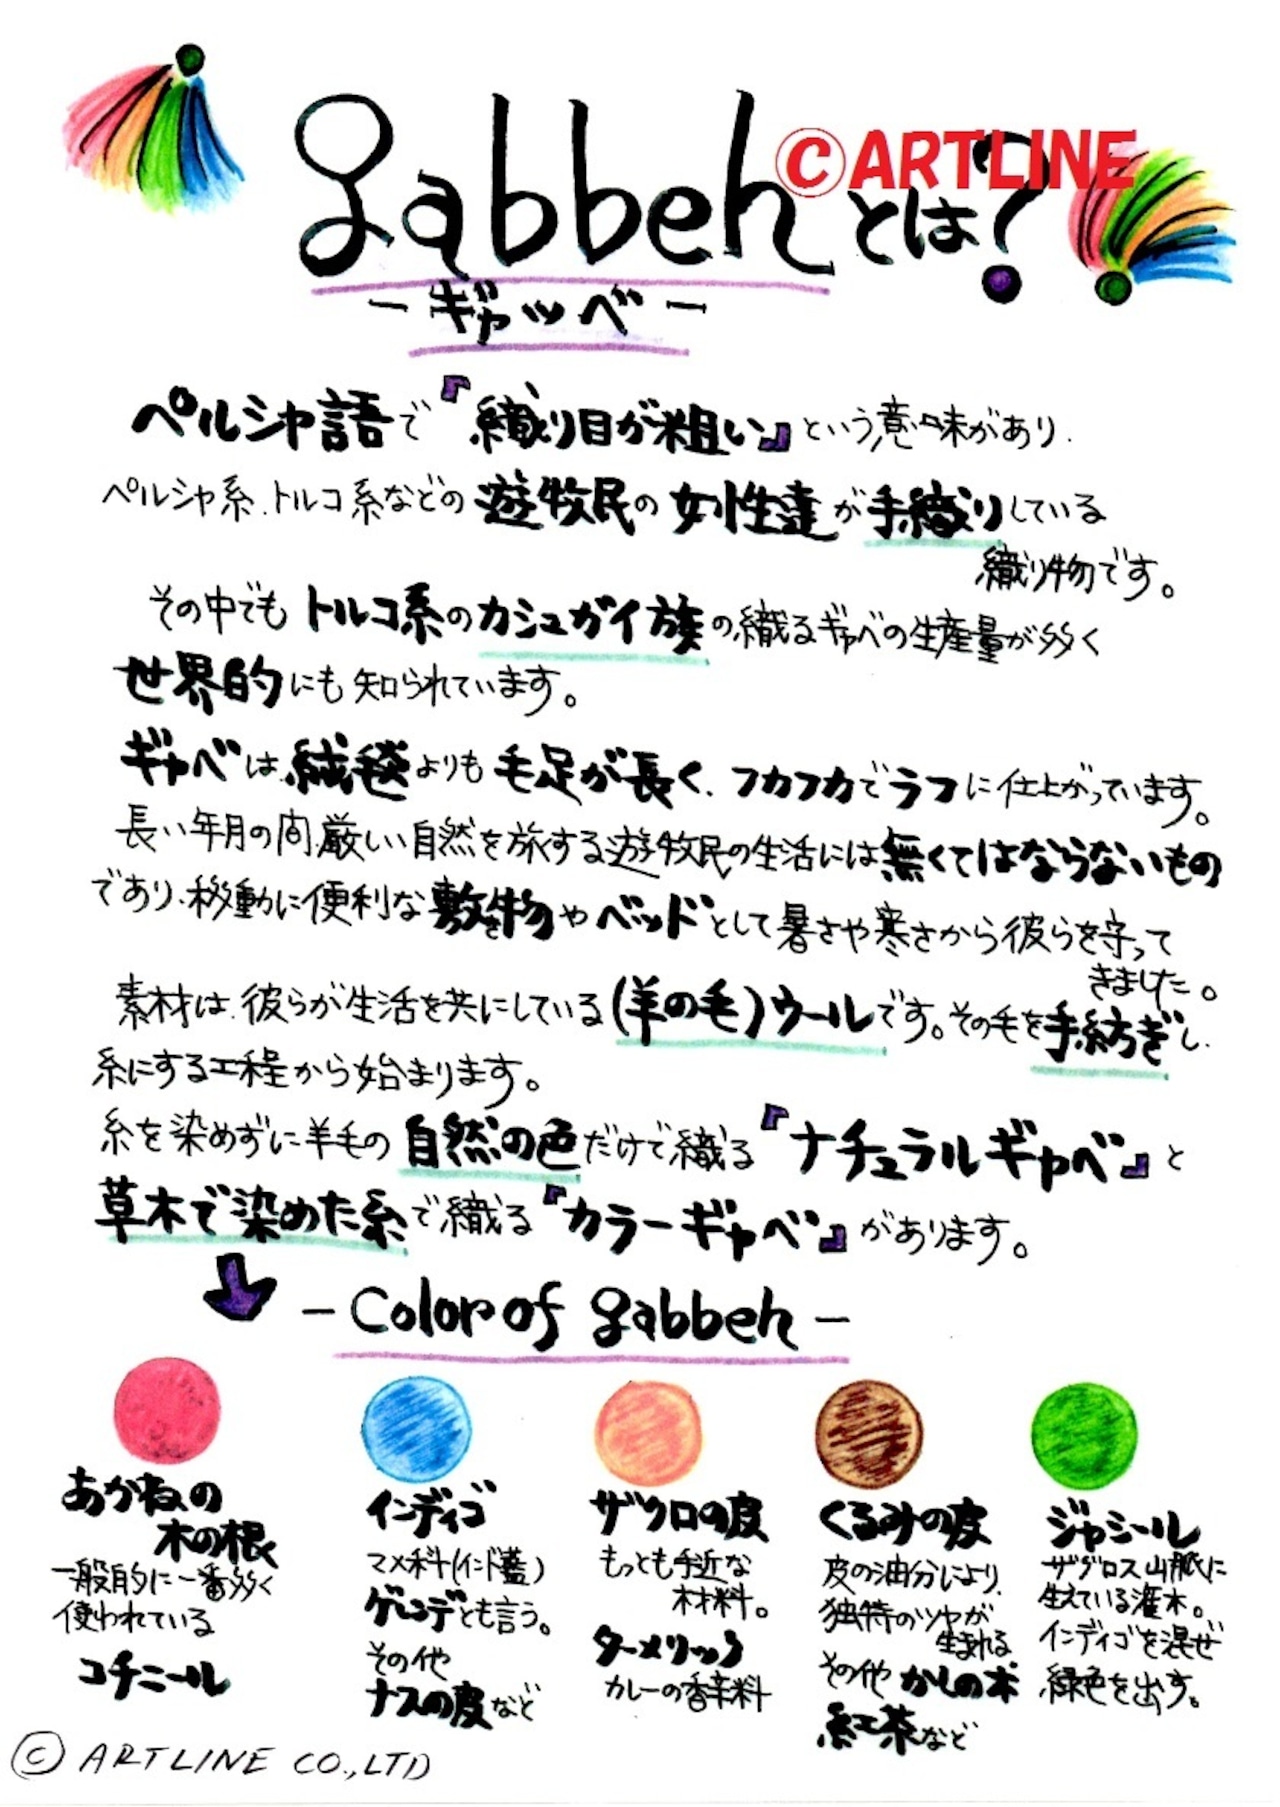 gabbehとは?
©ARTLINE
-ギャッベ-
ペルシャ語で『織り目が粗い』という意味があり、
ペルシャ系、トルコ系などの遊牧民の女性達が手織りしている
織り物です。
その中でもトルコ系のカシュガイ族の織るギャベの生産量が多く
世界的にも知られています。
ギャベは、絨毯よりも毛足が長く、フカフカでラフに仕上がっています。
長い年月の間、厳しい自然を旅する遊牧民の生活には無くてはならないもの
であり、移動に便利な敷き物やベッドとして暑さや寒さから彼らを守って
きました。
素材は、彼らが生活を共にしている(羊の毛)ウールです。その毛を手紡ぎし、
糸にする工程から始まります。
糸を染めずに羊毛の自然の色だけで織る『ナチュラルギャベ』と
草木で染めた糸で織る『カラーギャベ』があります。
-Color of gabbeh-
あかねの
木の根
一般的に一番多く
使われている
コチニール
インディゴ
マメ科(インド藍)
ゲレンデとも言う。
その他
ナスの皮など
ザクロの皮
もっとも手近な
材料。
ターメリック
カレーの香辛料
くるみの皮
皮の油分により、
独特のツヤが
生まれる
その他かしの木
紅茶など
ジャシール
ザグロス山脈に
生えている灌木。
インディゴを混ぜ
緑色を出す。
© ARTLINE CO.,LTD